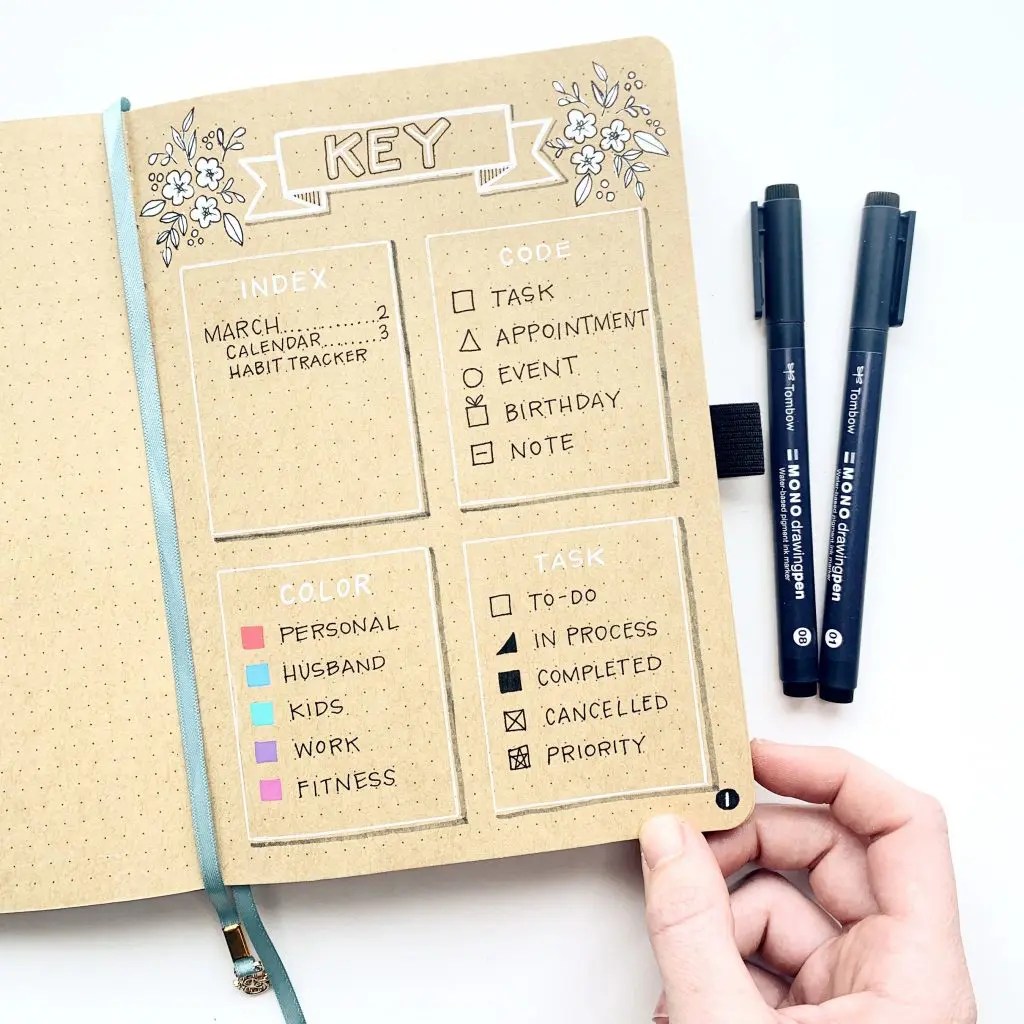 KEY
INDEX
MARCH............2
CALENDAR.........3
HABIT TRACKER
CODE
TASK
APPOINTMENT
EVENT
BIRTHDAY
NOTE
COLOR
PERSONAL
HUSBAND
KIDS
WORK
FITNESS
TASK
TO-DO
IN PROCESS
COMPLETED
CANCELLED
PRIORITY
1
Tombow
MONO drawingpen
Water-based pigment ink marker
08
Tombow
MONO drawingpen
Water-based pigment ink marker
01